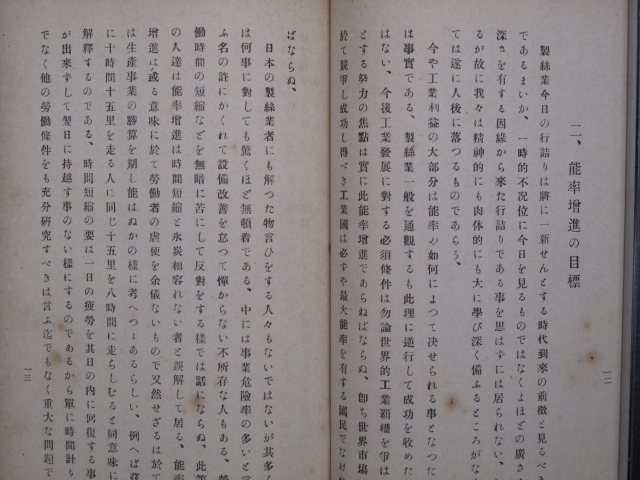 二、能率增進の目標
製絲業今日の行詰りは將に一新せんとする時代到來の前徵と見るべき
であるまいか、一時的不況位に今日を見るものではなくよほどの廣さ
深さを有する因緣から來た行詰りである事を思はずには居られない、
るが故に我々は精神的にも肉体的にも大に學び深く備ふるところがな
ては遂に人後に落つるものであらう、
今や工業利益の大部分は能率の如何によつて決せられる事となつた
は事實である、製絲業一般を通觀するも此理に逆行して成功を收めた
はない、今後工業發展に對する必須條件は勿論世界的工業覇權を爭は
とする努力の焦點は實に此能率增進であらねばならぬ、卽ち世界市塲
於て競爭し成功し得べき工業國は必ずや最大能率を有する國民でなけ
一二
ばならぬ、
日本の製絲業者にも解つた物言ひをする人々もないではないが其多く
は何事に對しても驚くほど無頓着である、中には事業危險率の多いと言
ふ名の許にかくれて設備改善を怠つて憚からない不所存な人もある、
働時間の短縮などを無暗に苦にして反對をする樣では話にならぬ、此等
の人達は能率增進は時間短縮と氷炭相容れない者と誤解して居る、能率
增進は或る意味に於て勞働者の虐使を余儀ないもので又然せざるは於て
は生產事業の勝算を期し能はぬかの樣に考へつゝあるらしい、例へば
に十時間十五里を走る人に同じ十五里を八時間に走らしむると同意味に
解釋するのである、時間短縮の要は一日の疲勞を其日の内に回復する事
が出來ずして翌日に持越す事のない樣にするのであるから單に時間計り
でなく他の勞働條件をも充分硏究すべきは言ふ迄でもなく重大な問題で
一三